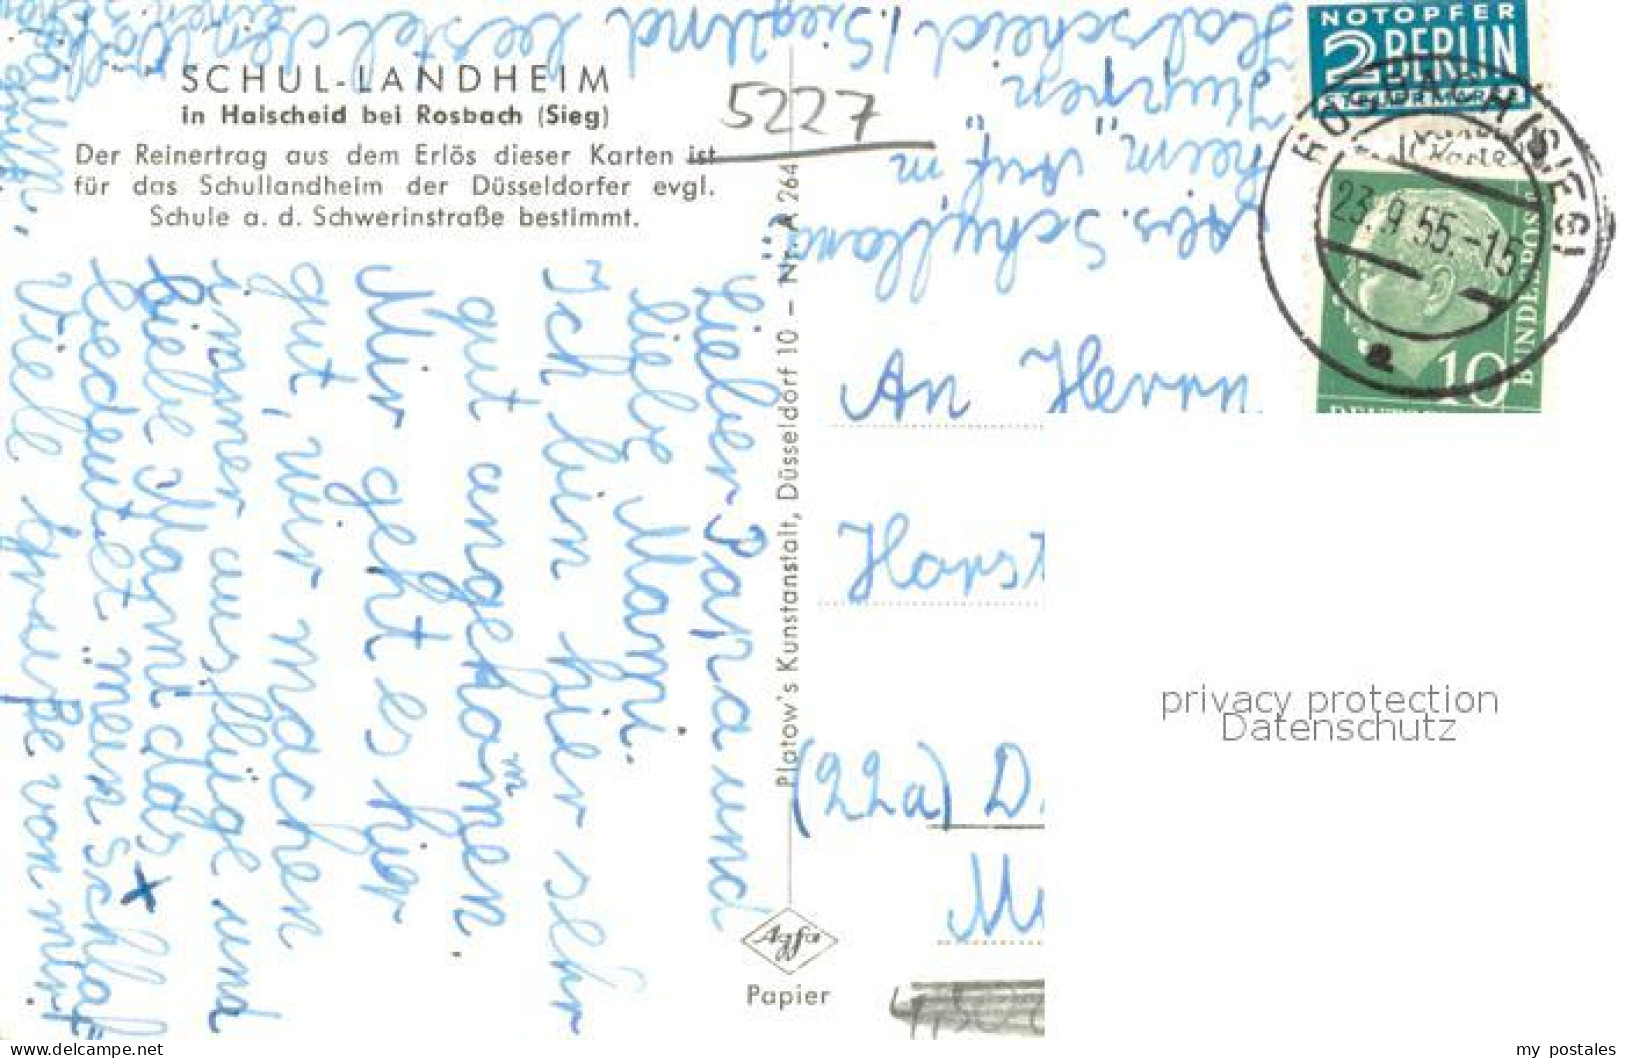 SCHUL-LANDHEIM
in Halscheid bei Rosbach (Sieg)
Der Reinertrag aus dem Erlös dieser Karten ist
für das Schullandheim der Düsseldorfer evgl.
Schule a. d. Schwerinstraße bestimmt.
5227
Lieber Papa und
liebe Mami.
Ich bin hier sehr
gut angekommen.
Mir geht es hier
gut, wir machen
immer ausflüge und
Liebe Mami das x
bedeutet "mein schlaf
Viele Grüße von mir
raum,
Platow's Kunstanstalt, Düsseldorf 10 – Nr. A 264
Agfa
Papier
Abs. Schulland
heim
Halscheid / Siegland
NOTOPFER
2 BERLIN
STEUERMARKE
ROSBACH (SIEG)
23.9.55.-15
a
10
BUNDESPOST
DEUTSCHE
An Herrn
Horst
(22a) D.
privacy protection
Datenschutz
my postales